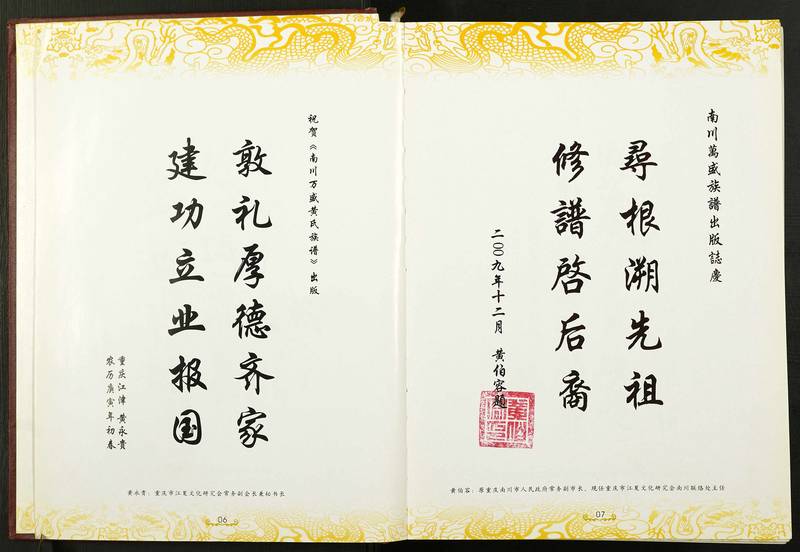 祝贺《南川万盛黄氏族谱》出版
敦礼厚德齐家
建功立业报国
重庆江津 黄永贵
农历庚寅年初春
黄永贵：重庆市江夏文化研究会常务副会长兼秘书长
06
南川萬盛族譜出版誌慶
尋根溯先祖
修譜啓后裔
二00九年十二月 黄伯容题
黄伯容：原重庆南川市人民政府常务副市长、现任重庆市江夏文化研究会南川联络处主任
07